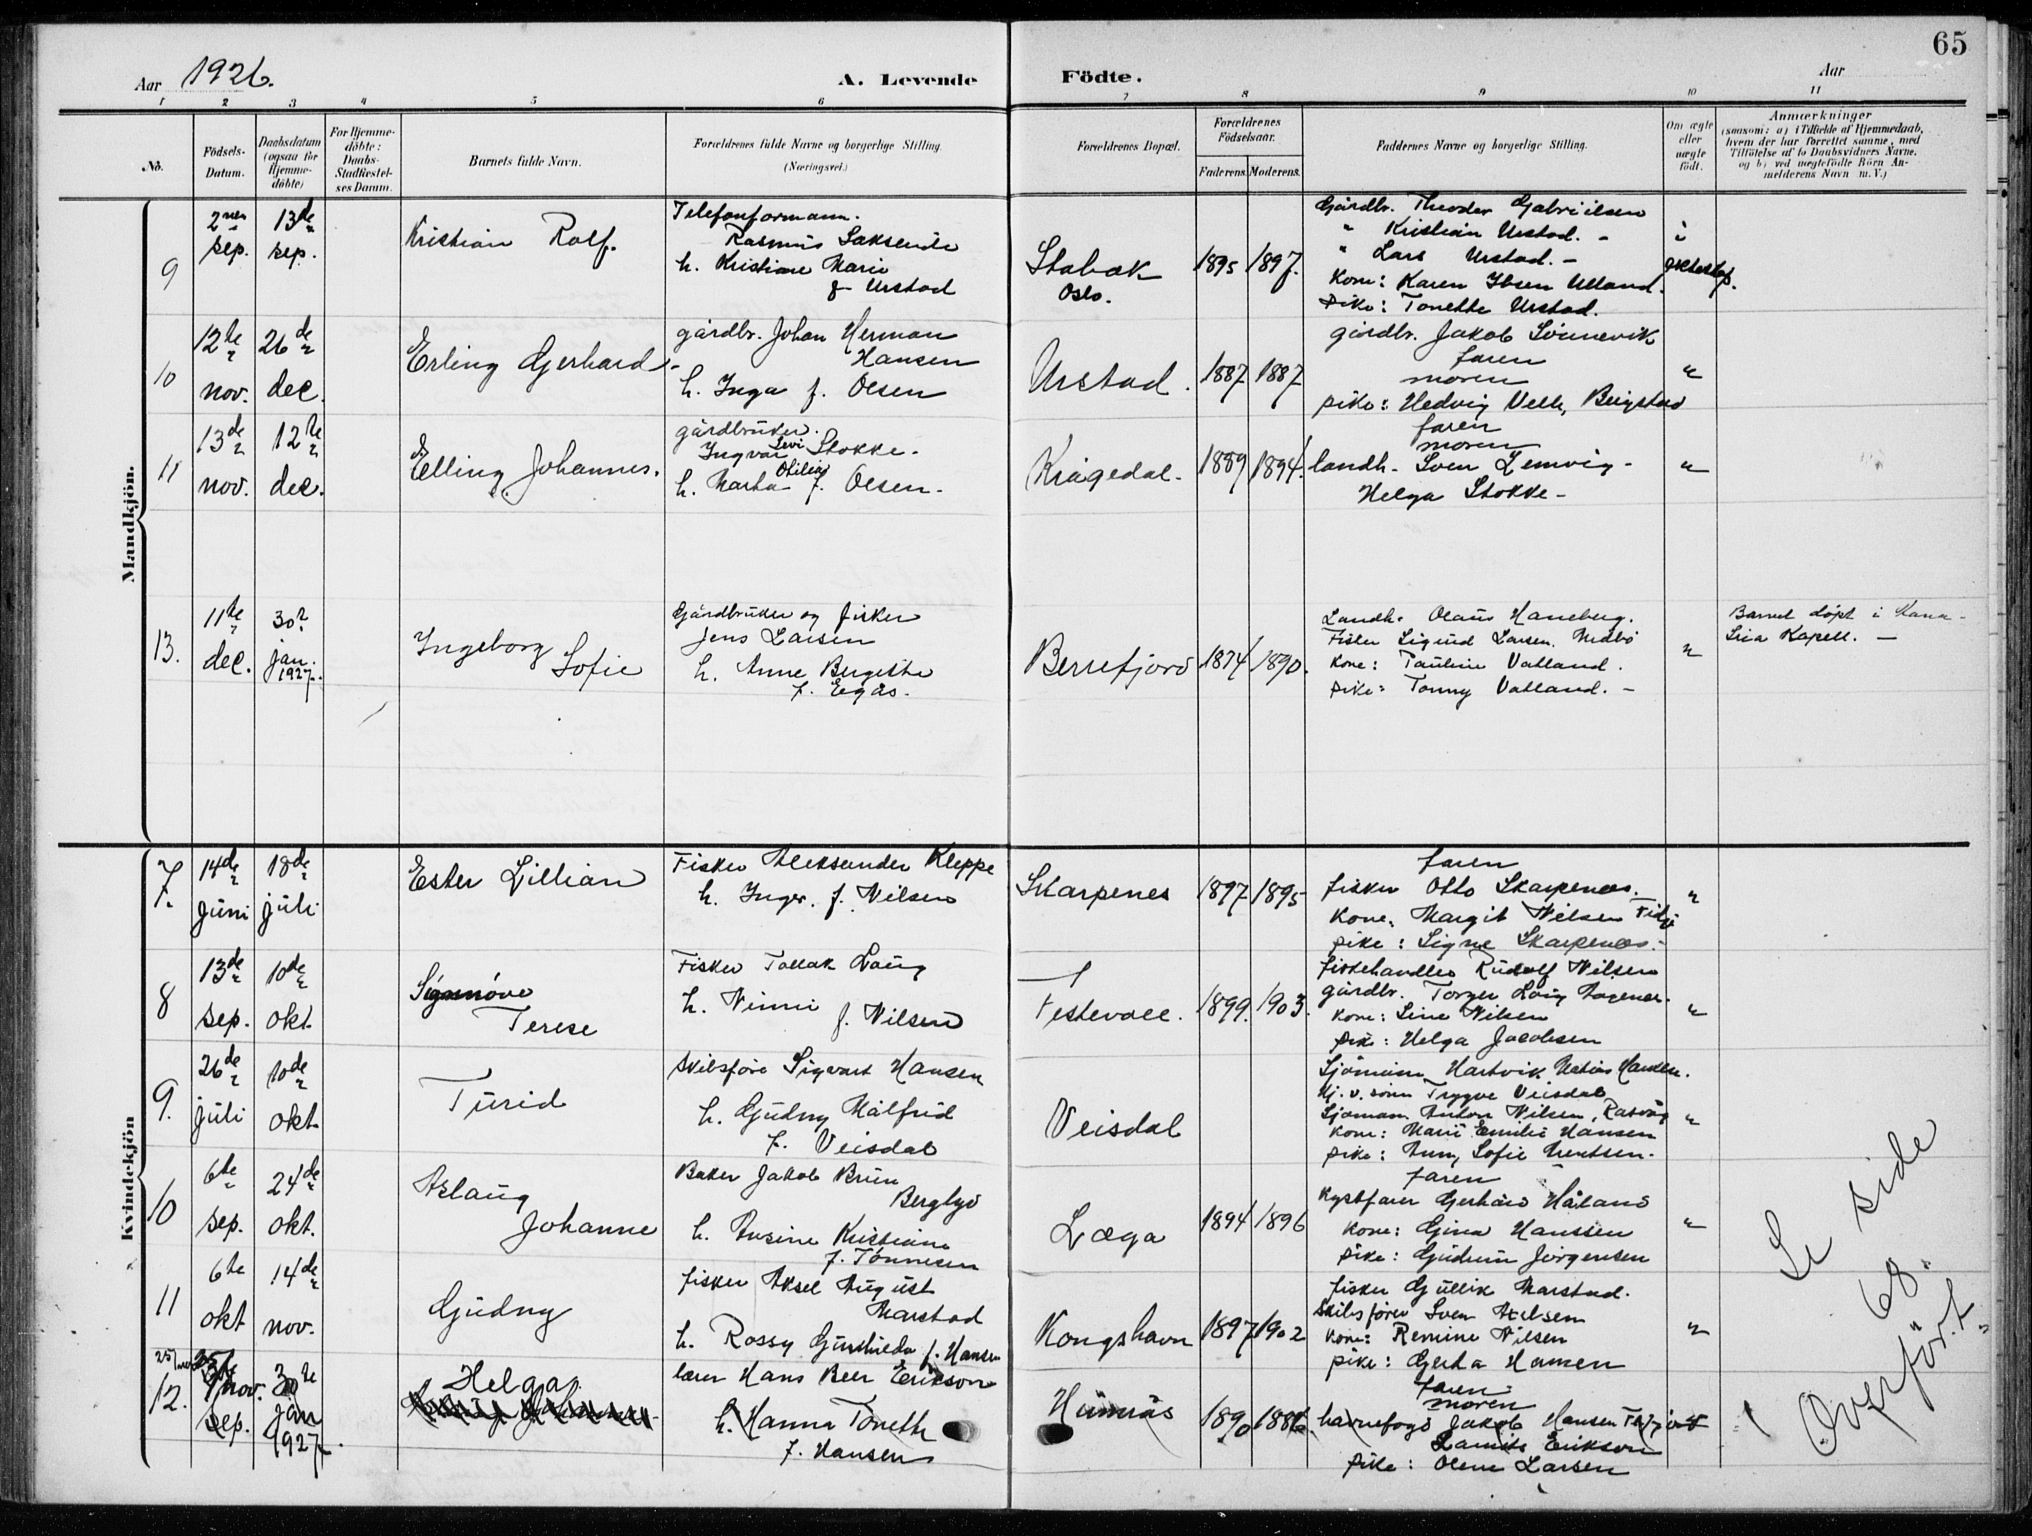 Aar 1926.
A. Levende
Födte.
Aar
65
1 2 3 4 5 6 7 8 9 10 11
No.
Födsels-
Datum.
Daabsdatum
(ogsaa for
Hjemme-
döbte)
For Hjemme-
döbte:
Daabs-
Stadfæstel-
ses Datum.
Barnets fulde Navn.
Forældrenes fulde Navne og borgerlige Stilling
(Næringsvei.)
Forældrenes Bopæl.
Forældrenes
Födselsaar.
Faderens. Moderens.
Faddernes Navne og borgerlige Stilling.
Om ægte
eller
uægte
født.
Anmærkninger
(saasom: a) i Tilfælde af Hjemmedaab,
hvem der har forrettet samme, med
Tilföielse af to Daabsvidners Navne,
og b) ved uægtefödte Börn An-
melderens Navn m. V.)
Mandkjön.
9
2nen
sep.
13de
sep.
Kristian Rolf.
Telefonformann.
Rasmus Saksende
h. Kristiane Marie
f. Urstad
Stabæk
Oslo.
1895 1897.
Gårdbr. Theodor Gabrielsen
" Kristian Urstad. -
" Lars Urstad. -
Kone: Karen Ibsen Ulland.
Pike: Tonette Urstad.
i
ekteskap.
10
12te
nov.
26de
dec.
Erling Gerhard.
gårdbr. Johan Herman
Hansen
h. Inga f. Olsen
Urstad.
1887 1887
gårdbr. Jakob Sønnevik
faren
moren
pike: Hedvig Velle, Bergstad
"
11
13de
nov.
12te
dec.
Elling Johannes.
gårdbruker.
Ingvar Levi Stokke.
h. Marta Otilia f. Olsen.
Krågedal.
1889 1894.
faren
moren
landh. Sven Lemvig -
Helga Stokke -
"
13.
11te
dec.
30te
jan.
1927.
Ingeborg
Sofie
Gårdbruker og fisker
Jens Larsen
h. Anne Bergitte
f. Eigås.
Berrefjord
1874 1890.
Landh. Olaus Haneberg.
Fisker Sigurd Larsen. Medbö
Kone: Pauline Vatland.
pike: Tonny Vatland. -
"
Barnet döpt i Kana-
Lria Kapell. -
Kvindekjön
7.
14de
juni
18de
juli
Ester Lillian
Fisker Aleksander Kleppe
h. Inger. f. Nilsen
Skarpenes
1897 1895
faren
fisker Otto Skarpenes.
Kone, Margit Nilsen Fidje
pike: Signe Skarpenes.
"
8
13de
sep.
10de
okt.
Terese
Fisker Tallak Laug
h. Ninni f. Nilsen
Festevoll.
1899. 1903.
fiskehandler Rudolf Nilsen
gårdbr. Torger Laug
Kone: Line Nilsen
pike: Helga Jacobsen
"
9.
26de
juli
10de
okt
Turid
Skibsföre Sigvart Hansen
h. Gudny Målfrid
f. Veisdal
Veisdal
Sjömann Hartvik Matias Hansen.
Hj. v. sönn Trygve Veisdal
Sjömann Anton Nilsen, Rasvåg
Kone: Marie Emilie Hansen
pike: Anny Sofie
"
10
6te
sep.
24de
okt.
Aslaug
Johanne
Baker Jakob Bruun
Berglyd
h. Ansine Kristiane
f. Tönnesen
Læga
1894 1896
faren
Kystfarer Gerhard Håland
Kone: Gina Hanssen
pike: Gudrun Jörgensen
"
11
6te
okt
14de
nov.
Gudny
fisker Aksel August
Marstad
h. Rossy Gunhilda f. Hansen
Kongshavn
1897 1902
fisker Gullik Marstad.
Skibsförer Sven Axelsen
Kone: Remine Nilsen
pike: Gerda Hansen
"
12.
sep.
30te
jan
1927.
Helga
lærer Hans Beer Erikson
h. Hanna Toneth
f. Hansen
Humnäs
1890
faren
moren
havnefogd Jakob Hansen
Erikson
pike: Olene Larsen
Se side
68.
Overfört